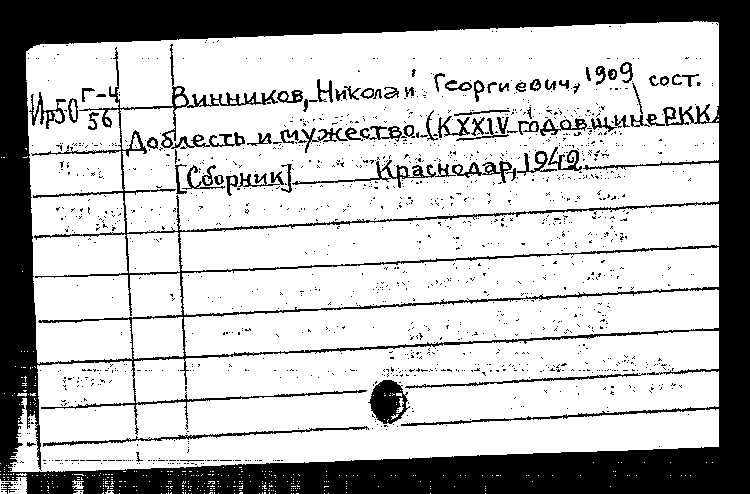 Ир50 Г-4
56
Винников, Николай Георгиевич, 1909 сост.
Доблесть и мужество (К XXIV годовщине РККА
[Сборник]. Краснодар, 1942.